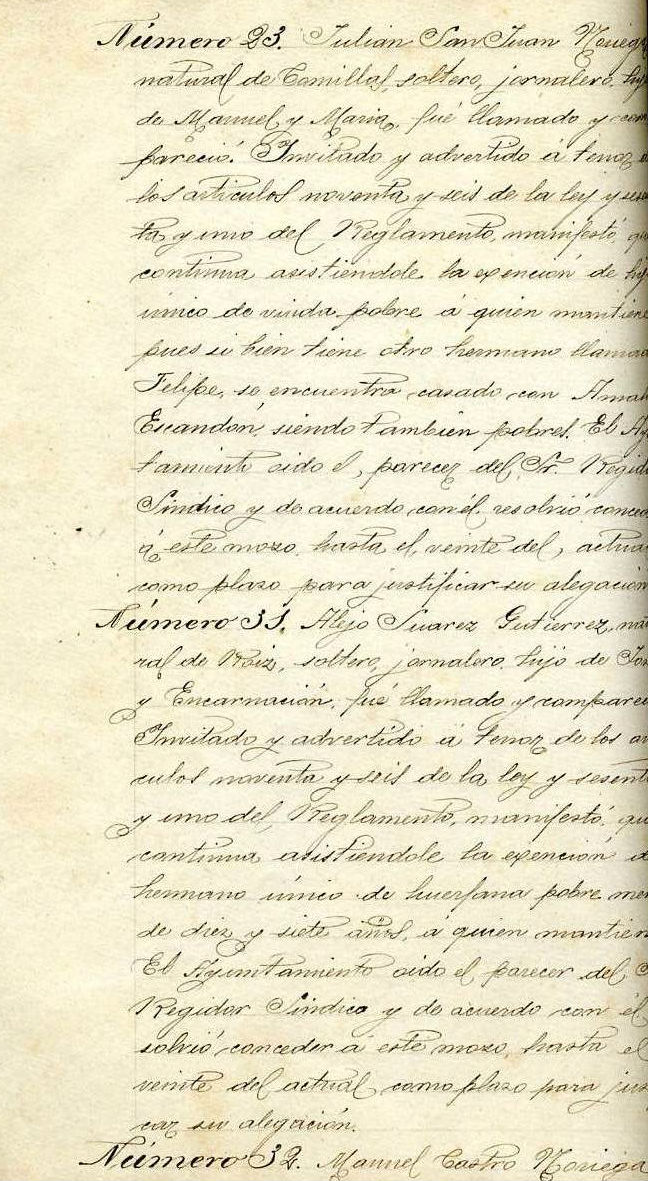 Número 23. Julian San Juan Norieg
natural de Comillas, soltero, jornalero, hij
de Manuel y Maria, fué llamado y com
pareció. Invitado y advertido á tenor d
los articulos noventa y seis de la ley y sese
ta y uno del Reglamento, manifestó, qu
continua asistiendole la exención de hij
único de viuda pobre á quien mantiene
pues si bien tiene otro hermano llamad
Felipe, se encuentra casado con Amal
Escandón, siendo tambien pobres. El Ay
tamiento oido el, parecer del Sr. Regid
Sindico y de acuerdo con él resolvió conced
á este mozo, hasta el veinte del, actua
como plazo para justificar su alegación
Número 31. Alejo Suarez Gutierrez, na
ral de Roiz, soltero, jornalero, hijo de Jos
y Encarnación, fué llamado y compareci
Invitado y advertido á tenor de los ar
culos noventa y seis de la ley y sesent
y uno del, Reglamento, manifestó, qu
continua asistiendole la exención d
hermano único de huerfana pobre men
de diez y siete años, á quien mantien
El Ayuntamiento oido el parecer del S
Regidor Sindico y de acuerdo con él
solvió conceder á este mozo, hasta el
veinte del actual como plazo para jus
car su alegación.
Número 32. Manuel Castro Noriega